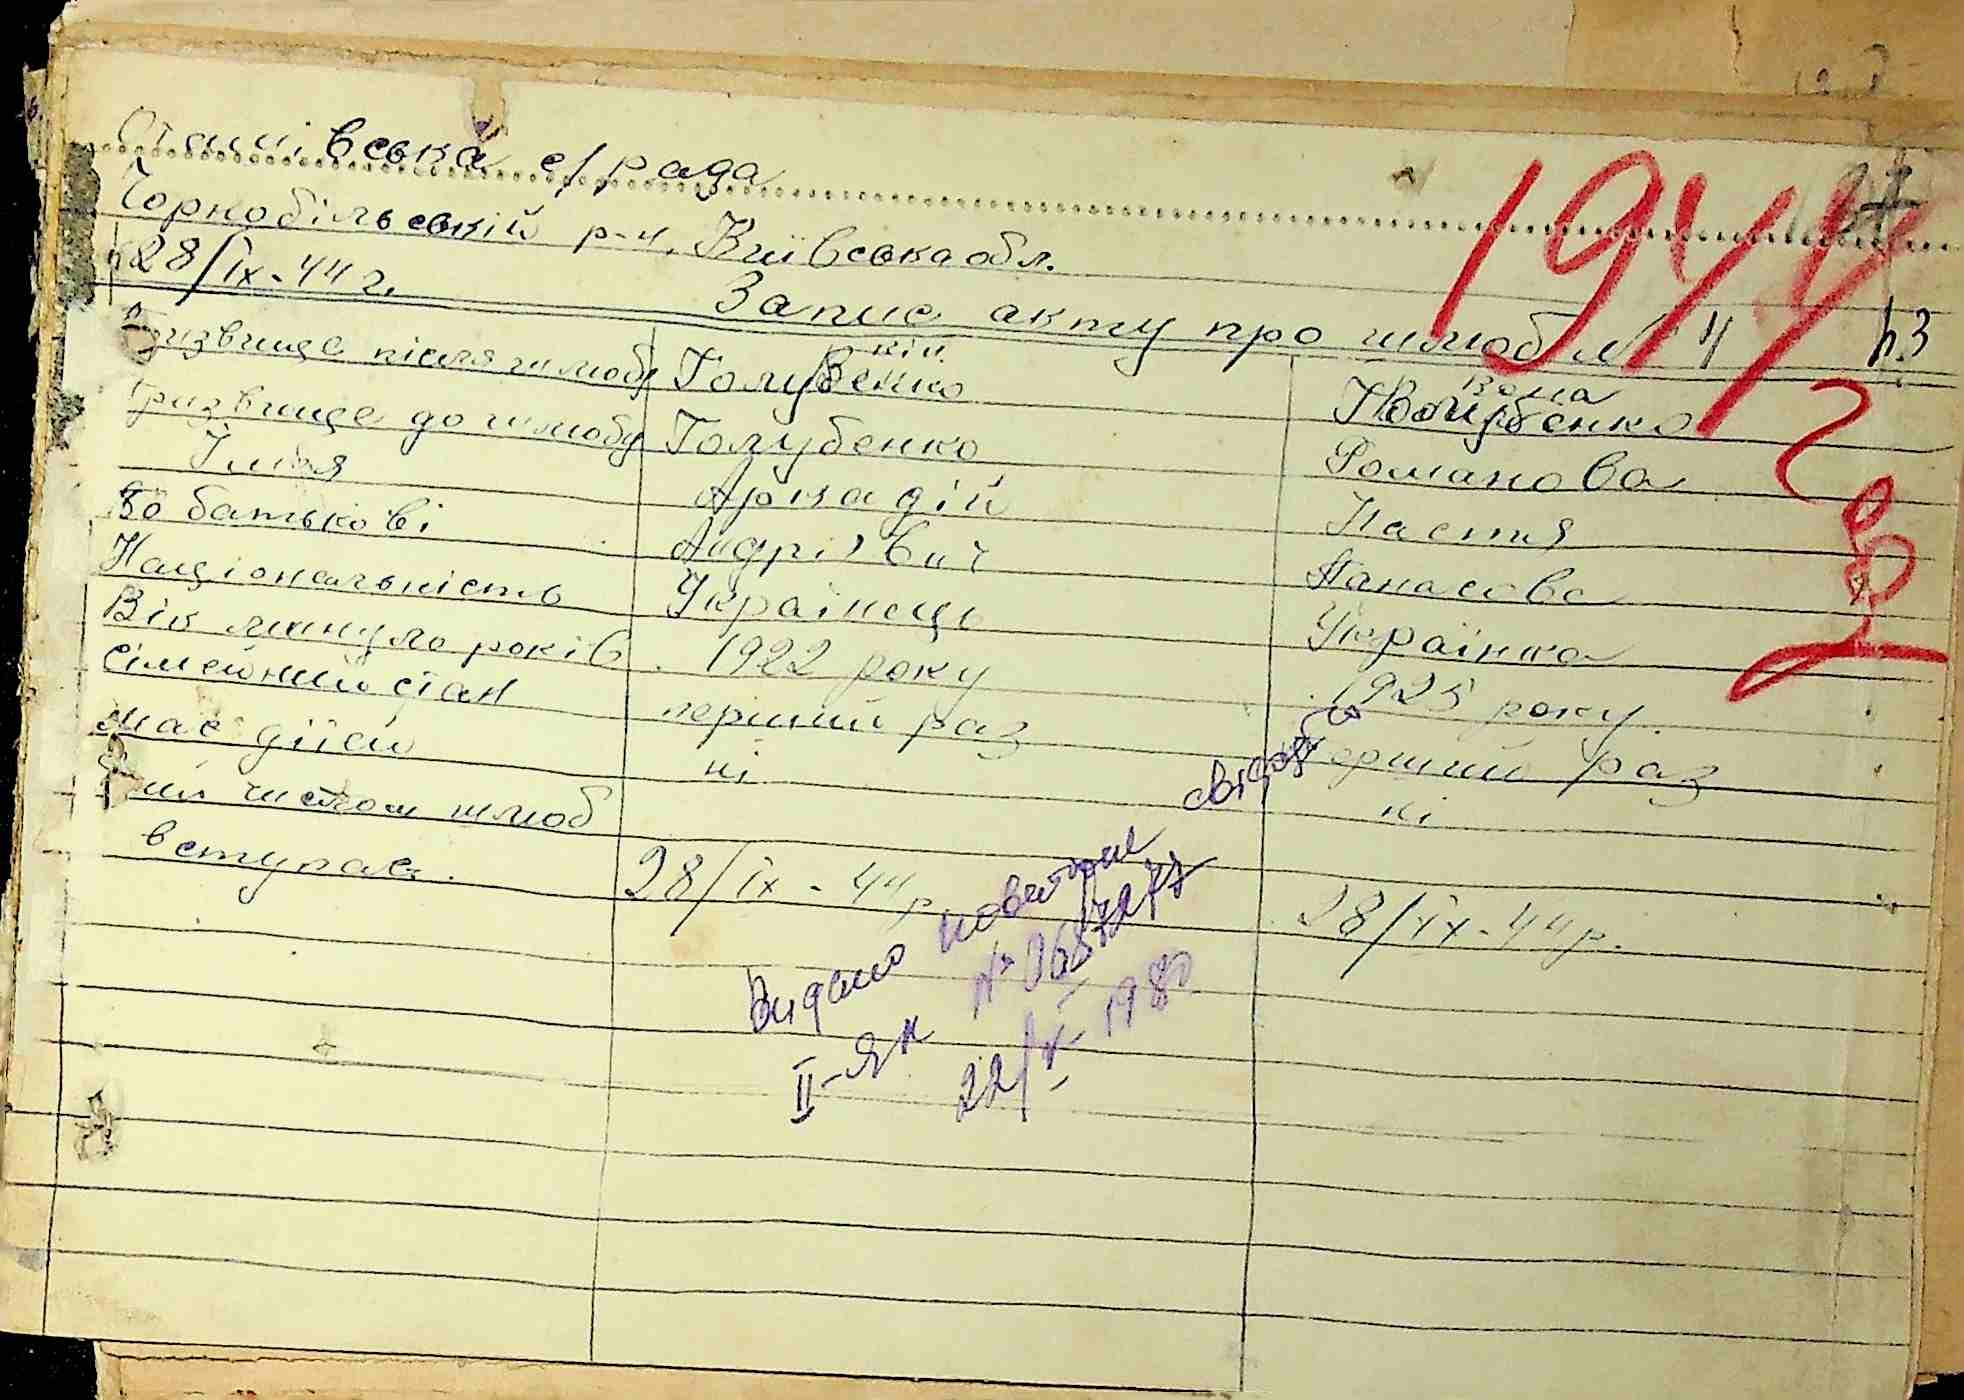 с/рада
Чорнобільській р-н, Київська обл.
28/ІХ-44 г.
Запис акту про шлюб № 4
1944
Він
Вона
Прізвище після шлюбу Голубенко Голубенко
Прізвище до шлюбу Голубенко Романова
Імя Аркадій Настя
по батькові Андрієвич Панасова
Національність Українець Українка
Вік минуло років 1922 року 1925 року
Сімейний стан перший раз перший раз
має дітей ні ні
шлюб
вступає. 28/ІХ-44 р 28/ІХ-44 р.
Видано повторне свідоцтво
ІІ-ЯК № 0687247
22/V-1980